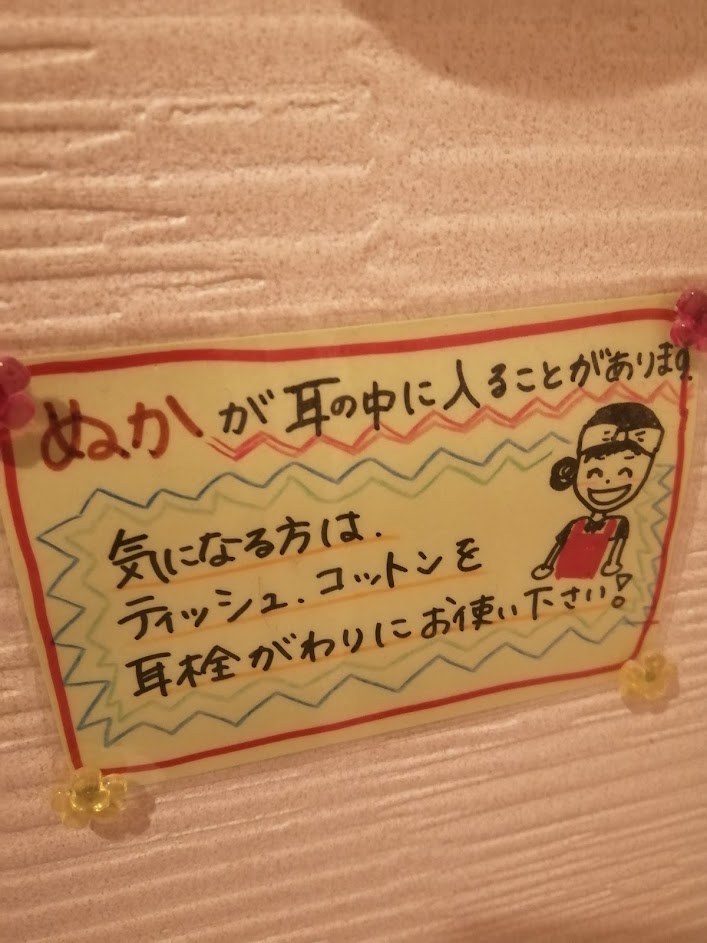 ぬかが耳の中に入ることがあります
気になる方は.
ティッシュ.コットンを
耳栓がわりにお使い下さい!